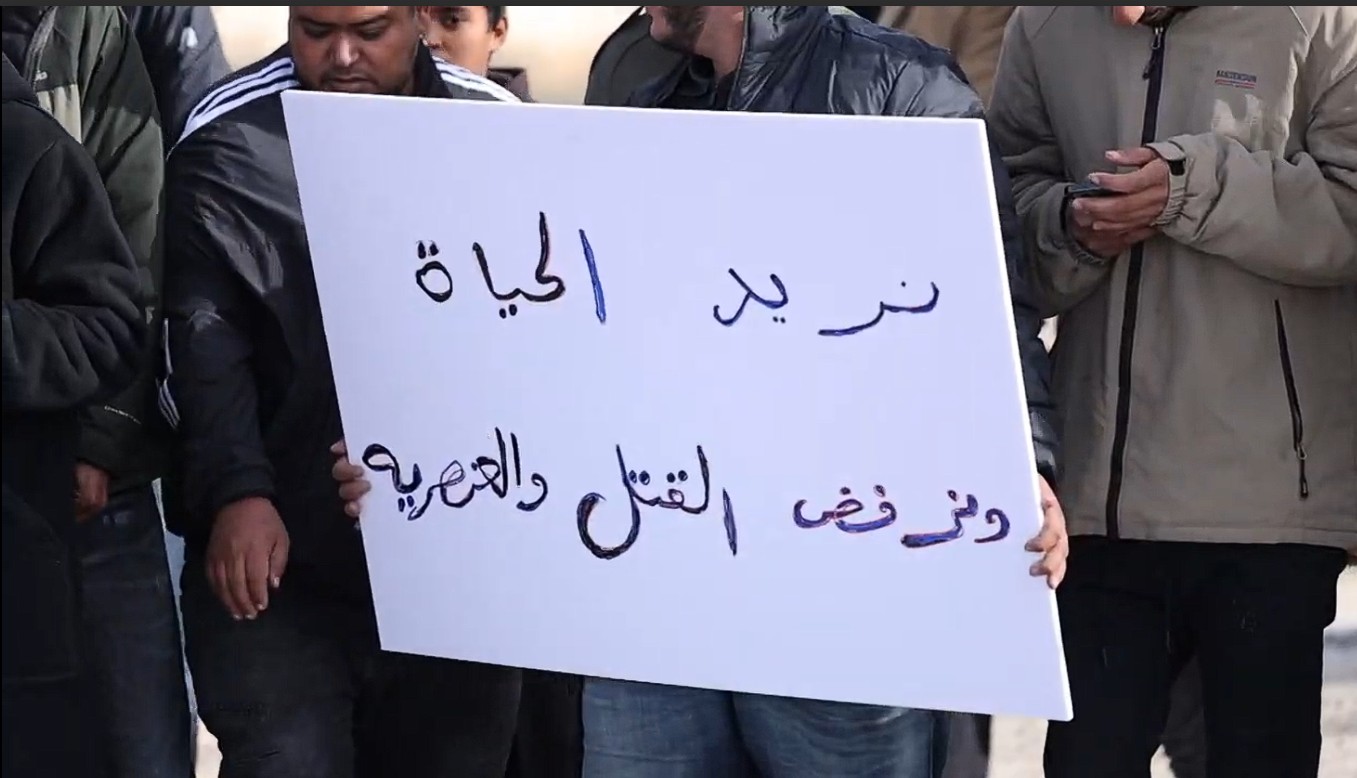 نريد الحياة
ونرفض القتل والعنصريه